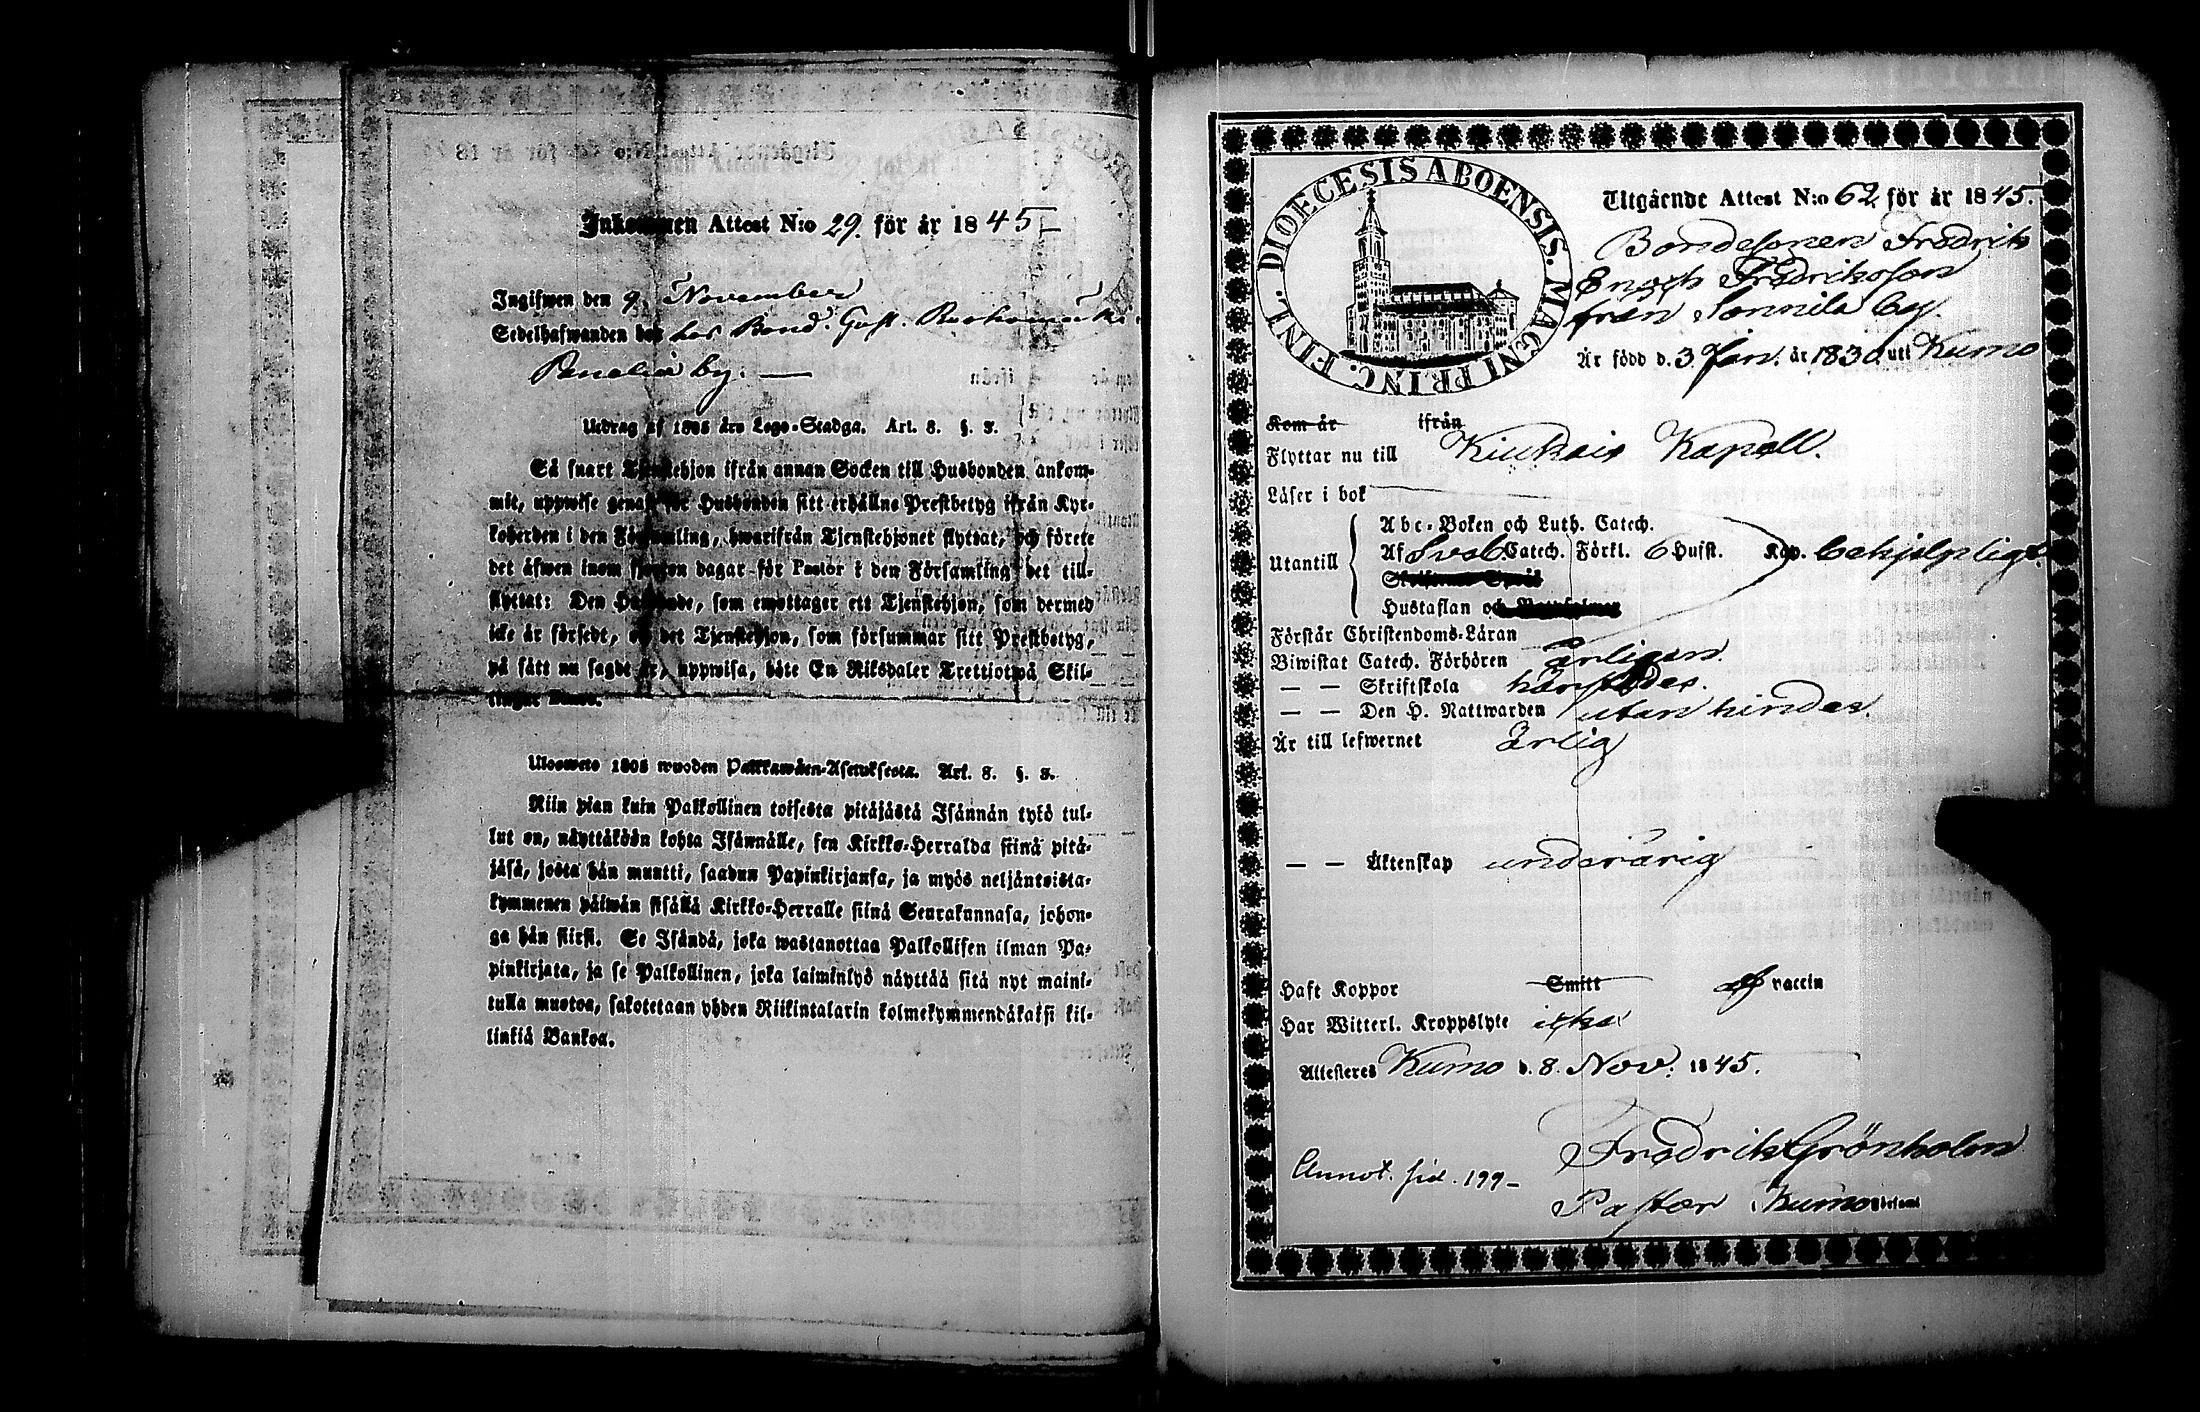 Inkommen Attest N:o 29. för år 1845
Ingifwen den 9 November
Sedelhafwanden hos Bond. Gust.
Panelia by.
Utdrag af 1805 års Lego-Stadga. Art. 8. §. 3.
Så snart Tjenstehjon ifrån annan Socken till Husbonden ankom-
mit, uppwise genast för Husbonden sitt erhållne Prestbetyg ifrån Kyr-
koherden i den Församling, hwarifrån Tjenstehjonet flyttat, och förete
det äfwen inom fjorton dagar för Pastor i den Församling det till-
flyttat: Den Husbonde, som emottager ett Tjenstehjon, som dermed
icke är försedt, och det Tjenstehjon, som försummar sitt Prestbetyg,
på sätt nu sagdt är, uppwisa, böte En Riksdaler Trettiotwå Skil-
lingar Banco.
Ulosweto 1805 wuoden Palkkawäen-Asetuksesta. Art. 8. §. 3.
Niin pian kuin Palkollinen toisesta pitäjästä Isännän tykö tul-
lut on, näyttäköön kohta Isännälle, sen Kirkko-Herralda siinä pitä-
jäsä, josta hän muutti, saadun Papinkirjansa, ja myös neljäntoista-
kymmenen päiwän sisällä Kirkko-Herralle siinä Seurakunnasa, johon-
ga hän siirsi. Se Isändä, joka wastanottaa Palkollisen ilman Pa-
pinkirjata, ja se Palkollinen, joka laiminlyö näyttää sitä nyt maini-
tulla muotoa, sakotetaan yhden Riikintalarin kolmekymmendäkaksi kil-
linkiä Bankoa.
DIOECESIS ABOENSIS. MAGNI PRINC. FINL.
Utgående Attest N:o 62 för år 1845.
Bondesonen Fredrik
Enoch Fredriksson
från Sonnila by.
Är född d. 3 Jan. år 1830 uti Kumo
Kom år ifrån
Flyttar nu till Kiukais Kapell.
Läser i bok
Abc-Boken och Luth. Catech.
Utantill
Af Sveb Catech. Förkl. 6 Hufst. Kap. behjelpligt.
Hustaflan och
Förstår Christendoms-Läran
Biwistat Catech. Förhören årligen.
— — Skriftskola
— — Den H. Nattwarden utan hinder.
Är till lefwernet ärlig
— — Äktenskap underårig
Haft Koppor Smitt vaccin
Har Witterl. Kroppslyte icke
Attesteres Kumo d. 8. Nov. 1845.
Fredrik Grönholm
Annot. sid. 199-
Pastor Kumo